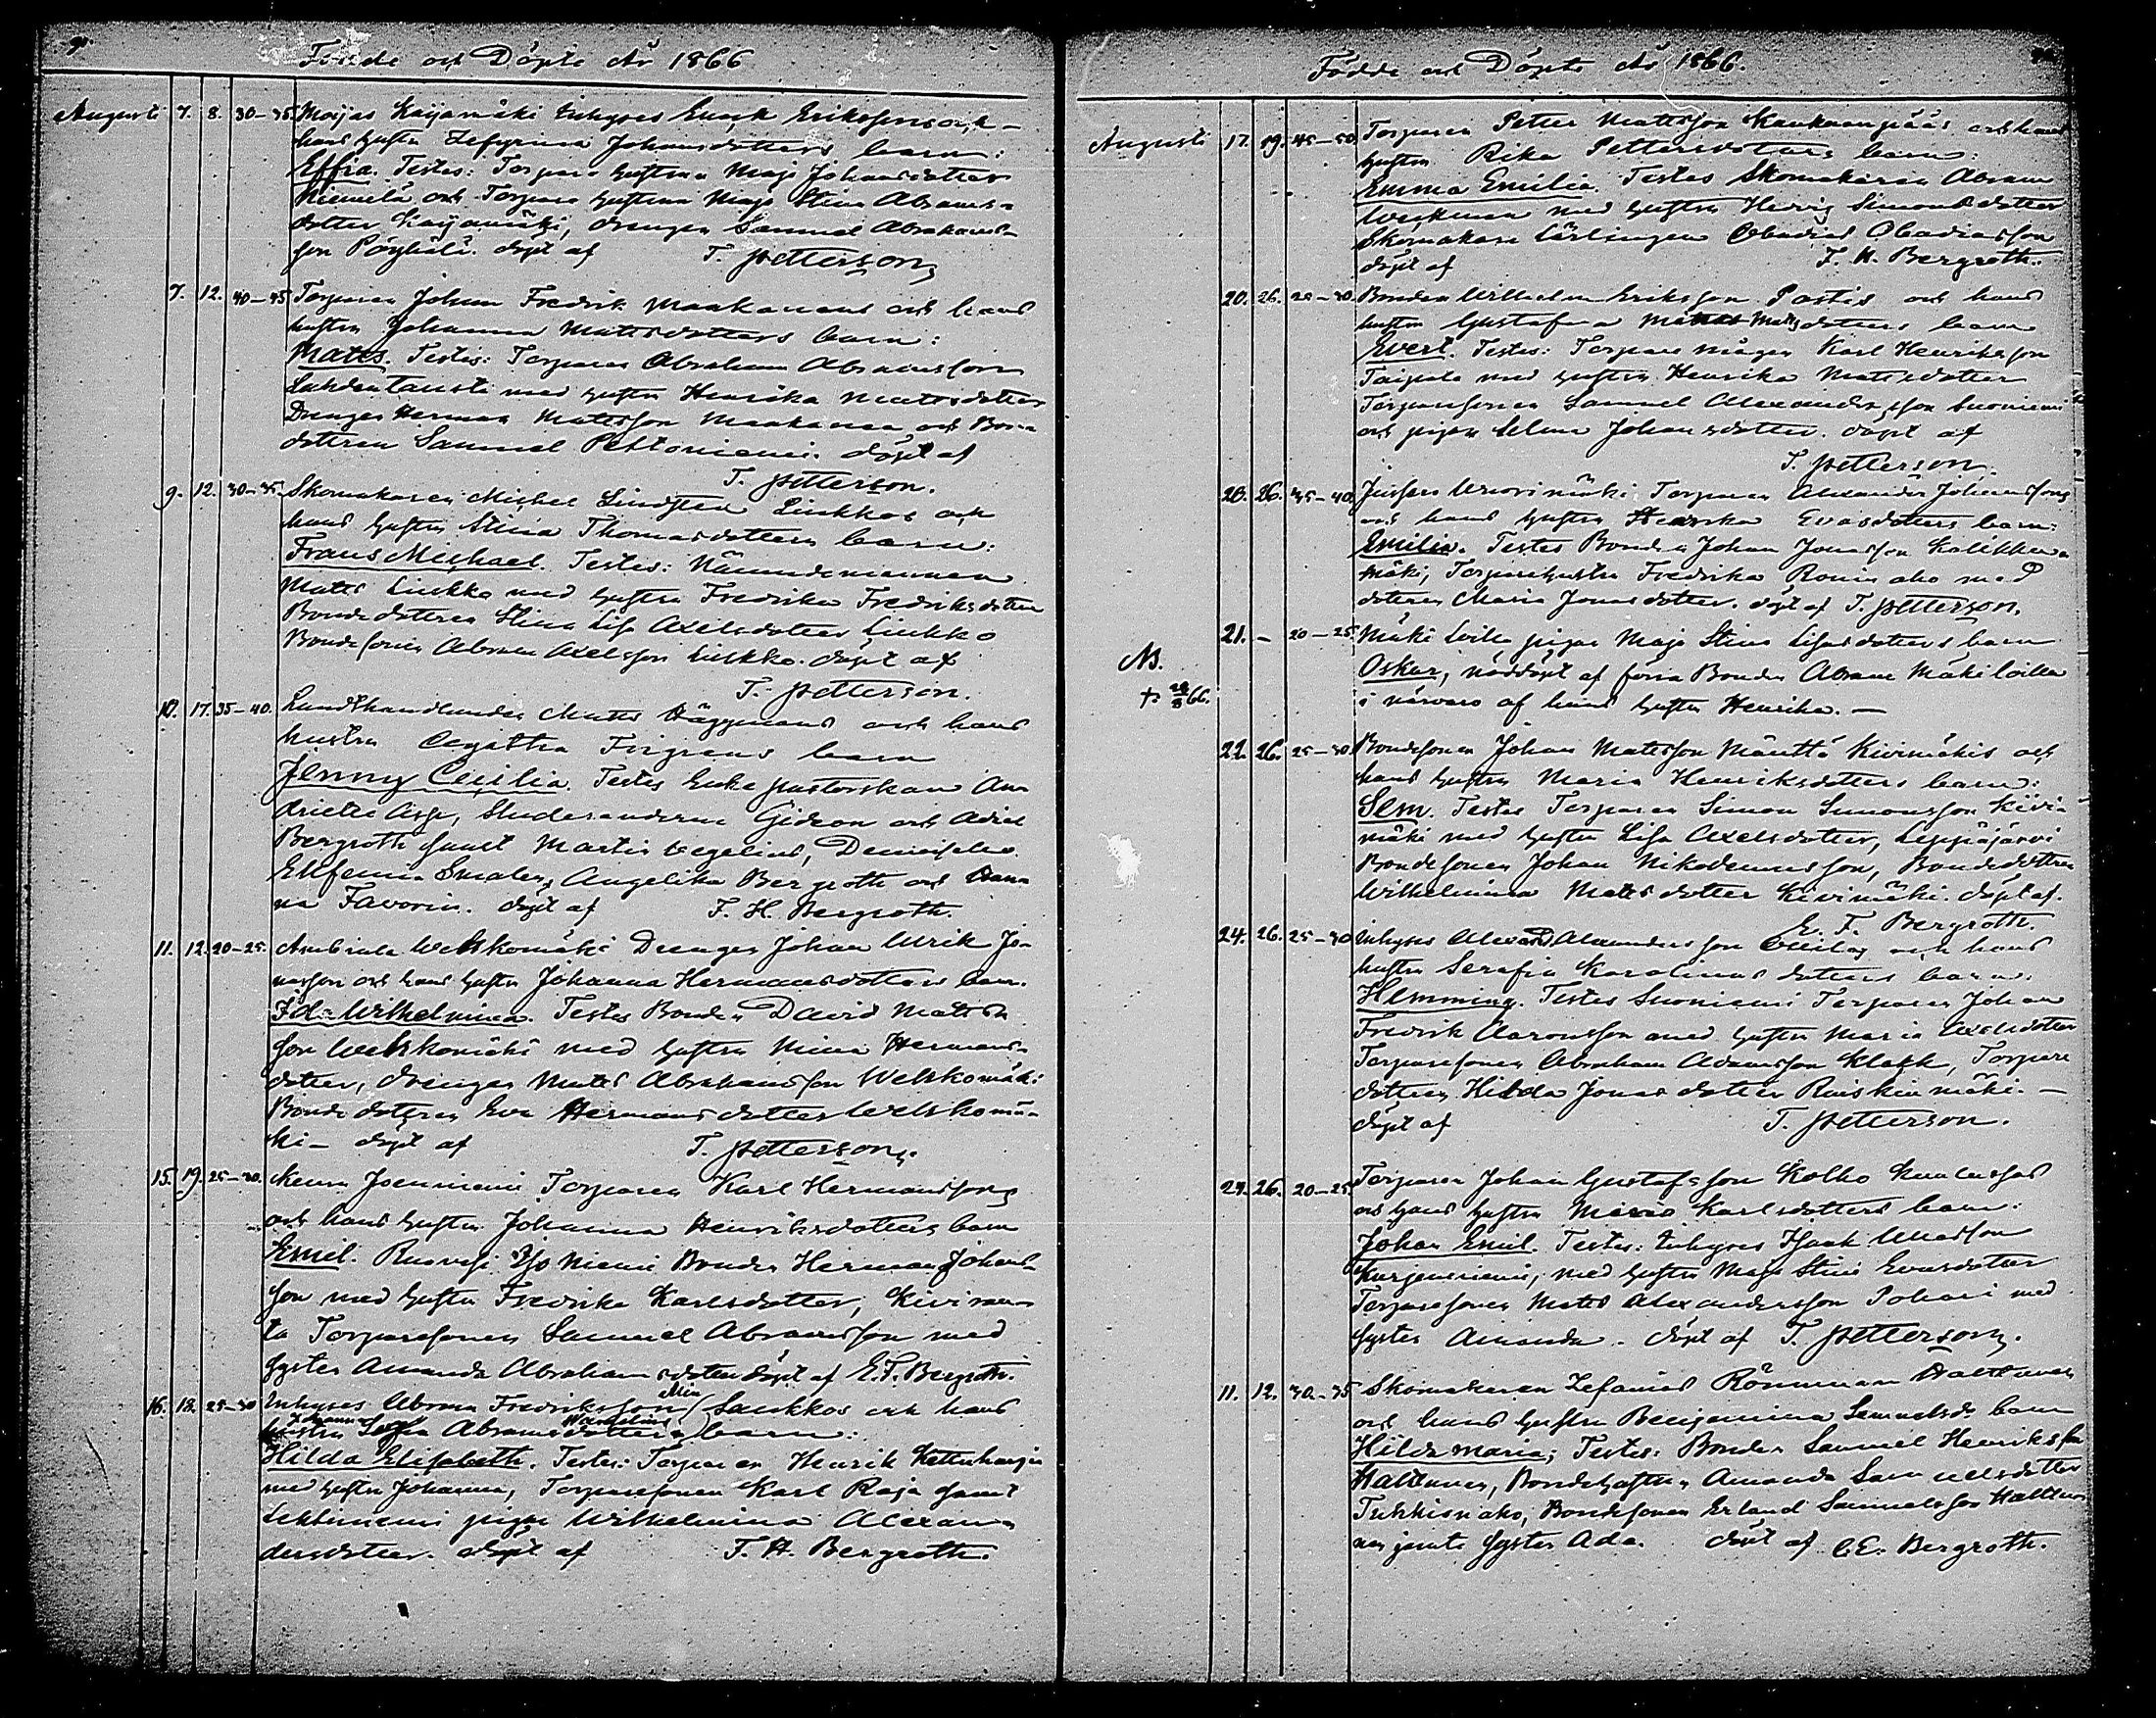 Födde och Döpte År 1866
Augusti 7. 8. 30-35. Maijas Kaijamäki Inhyses Enock Erikssons och
hans hustru Zefyrina Johansdotters barn:
Effia. Testes: Torpare hustrun Maja Johansdotter
Niemelä och Torpare hustrun Maja Stina Abrams-
dotter Kaijamäki, drengen Samuel Abrahams-
son Pöyhölä. döpt af T. Petterson,
7. 12. 40-45 Torparen Johan Fredrik Maakanens och hans
hustru Johanna Mattsdotters barn:
Matts. Testes: Torparen Abraham Abramsson
Lahdentausta med hustru Henrika Mattsdotter
Drengen Herman Mattsson Maakanen och Bon-
dotteren Samuel Peltoniemi. döpt af
T. Petterson.
9. 12. 30-35. Skomakaren Michel Lindsten Liukkos och
hans hustru Stina Thomasdotters barn:
Frans Michael. Testes: Nämndemannen
Matts Liukko med hustru Fredrika Fredriksdotter
Bondedotteren Stina Lisa Axelsdotter Liukko
Bondesonen Abram Axelsson Liukko. döpt af
T. Petterson.
10. 17. 35-40. Landthandlanden Matts Häggmans och hans
hustru Agatha barn
Jenny Cecilia. Testes Enkepastorskan
Asp, Studeranderne Gideon och
Bergroth samt Martin Wegelius,
Smaler, Angelika Bergroth och Han-
na Favorin. döpt af F. H. Bergroth.
11. 12. 20-25. Ambiala Welskomäki Drengen Johan Ulrik Jo-
nasson och hans hustru Johanna Hermansdotters barn.
Ida Wilhelmina. Testes Bonden David Matts
son Welskomäki med hustru Mina Hermans-
dotter, drengen Matts Abrahamsson Welskomäki
Bonde dotteren Eva Hermansdotter Welskomä-
ki- döpt af T. Petterson.
15. 19. 25-30. Joenniemi Torparen Karl Hermanssons
och hans hustru Johanna Henriksdotters barn
Emil. Ruovesi Yso Niemi Bonden Herman Johans-
son med hustru Fredrika Karlsdotter, Kiviran-
ta Torparesonen Samuel Abramsson med
syster Amanda Abrahamsdotter döpt af E. F. Bergroth.
16. 18. 25-30 Inhyses Abram Fredriksson Saukkos och hans
hustru Johanna Abramsdotters barn:
Hilda Elisabeth. Testes: Torparen Henrik Kettuharju
med hustru Johanna, Torparesonen Karl Raja samt
Lehtiniemi pigan Wilhelmina Alexan-
dersdotter. döpt af F. H. Bergroth.
Födde och Döpte År 1866.
Augusti 17. 19. 45-50. Torparen Petter Mattsson Kaukuanpääs och hans
hustru Rika Pettersdotters barn:
Emma Emilia. Testes Skomakaren Abram
Weckman med hustru Hedvig Simonsdotter
Skomakare lärlingen Obadias Obadiasson
döpt af F. H. Bergroth.
20. 26. 25-30. Bonden Wilhelm Eriksson Pastis och hans
hustru Gustafva Mattsdotters barn
Evert. Testes: Torpare mågen Karl Henriksson
Taipale med hustru Henrika Mattsdotter
Torparesonen Samuel Alexandersson Suoniemi
och pigan Selma Johansdotter. döpt af
T. Petterson.
20. 26. 35-40. Jussars Wuorimäki Torparen Alexander Johanssons
och hans hustru Henrika Evasdotters barn:
Emilia. Testes Bonden Johan Jonasson Kalikkua
mäki, Torparehustru Fredrika Roninaho med
dotteren Maria Jonasdotter. döpt af T. Petterson.
NB.
† 28/8 66.
21. - 20-25. Mäki Loila pigan Maja Stina Lisasdotters barn
Oskar, nöddöpt af förra Bonden Abram Mäki Loila
i närvaro af hans hustru Henrika.-
22. 26. 25-30. Bondesonen Johan Mattsson Mänttä Kivimäkis och
hans hustru Maria Henriksdotters barn:
Sem. Testes Torparen Simon Simonsson Kivi-
mäki med hustru Lisa Axelsdotter, Leppäjärvi
Bondesonen Johan Nikodemusson, Bondedotteren
Wilhelmina Matts dotter Kivimäki. döpt af
E. F. Bergroth.
24. 26. 25-30 Inhyses Alexand. Alexandersson Ceciliæ och hans
hustru Serafia Karolinas dotters barn:
Hemming. Testes Suoniemi Torparen Johan
Fredrik Aaronsson med hustru Maria Axelsdotter
Torparesonen Abraham Adamsson Klapp, Torpare
dotteren Hilda Jonasdotter Ruiskinmäki.-
döpt af T. Petterson.
24. 26. 20-25. Torparen Johan Gustafsson Kolho
och hans hustru Maria Karlsdotters barn:
Johan Emil. Testes: Inhyses Isaak
Kurjenniemi, med hustru Maja Stina Evasdotter
Torparesonen Matts Alexandersson Pohari med
syster Amanda. döpt af T. Petterson.
11. 12. 30-35 Skomakaren Zefanias Rönnman Halttunen
och hans hustru Benjamina Samuelsd. barn
Hilda Maria; Testes: Bonden Samuel Henriksson
Halttunen, Bondehustrun Amanda Samuelsdotter
Tukkisnaho, Bondesonen Erland Samuelsson Halttu-
nen jemte syster Ada. döpt af C. E. Bergroth.